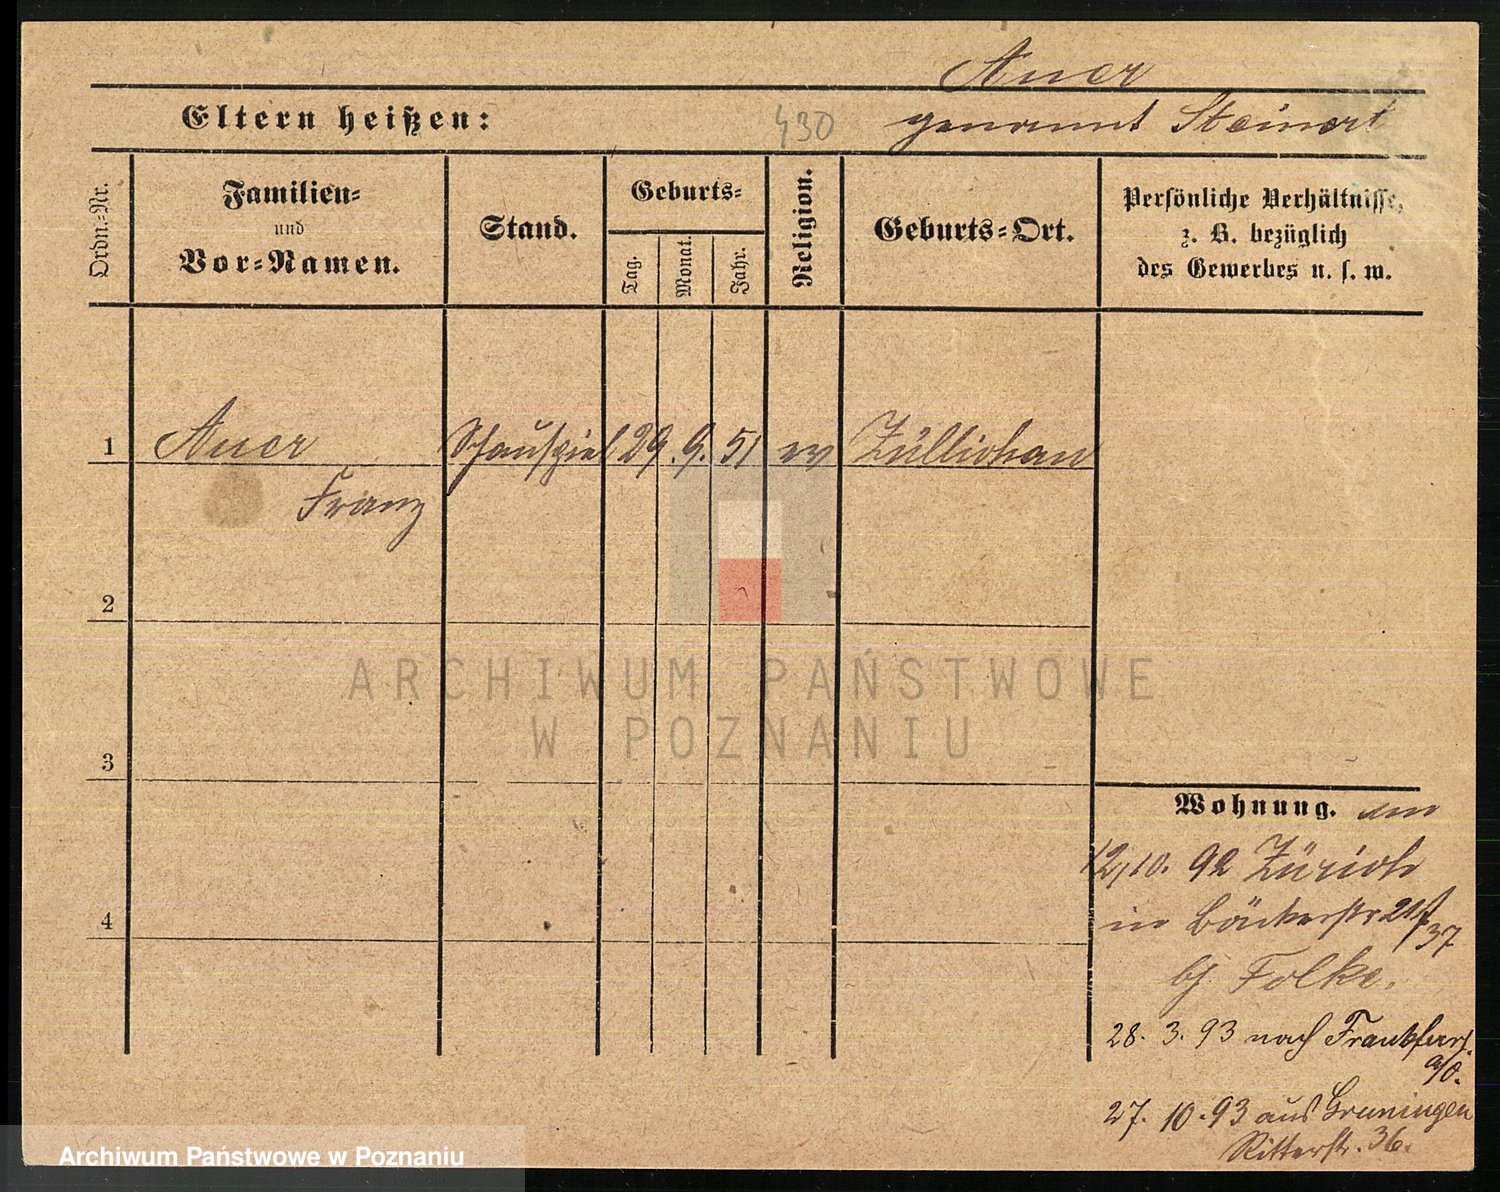 Auer
Eltern heißen: 430 genannt Steinert
Ordn.-Nr.
Familien-
und
Vor-Namen.
Stand.
Geburts-
Tag.
Monat.
Jahr.
Religion.
Geburts-Ort.
Persönliche Verhältnisse,
z. B. bezüglich
des Gewerbes u. s. w.
1 Auer Schauspiel 29. 9. 51 ev Züllichau
Franz
2
ARCHIWUM PAŃSTWOWE
W POZNANIU
3
Wohnung.
12/10. 92 Zürich
in Bäckerstr 21/
37
bj. Folke.
28. 3. 93 nach Frankfurt
a/O.
27. 10. 93 aus Gruningen
Ritterstr. 36.
4
Archiwum Państwowe w Poznaniu